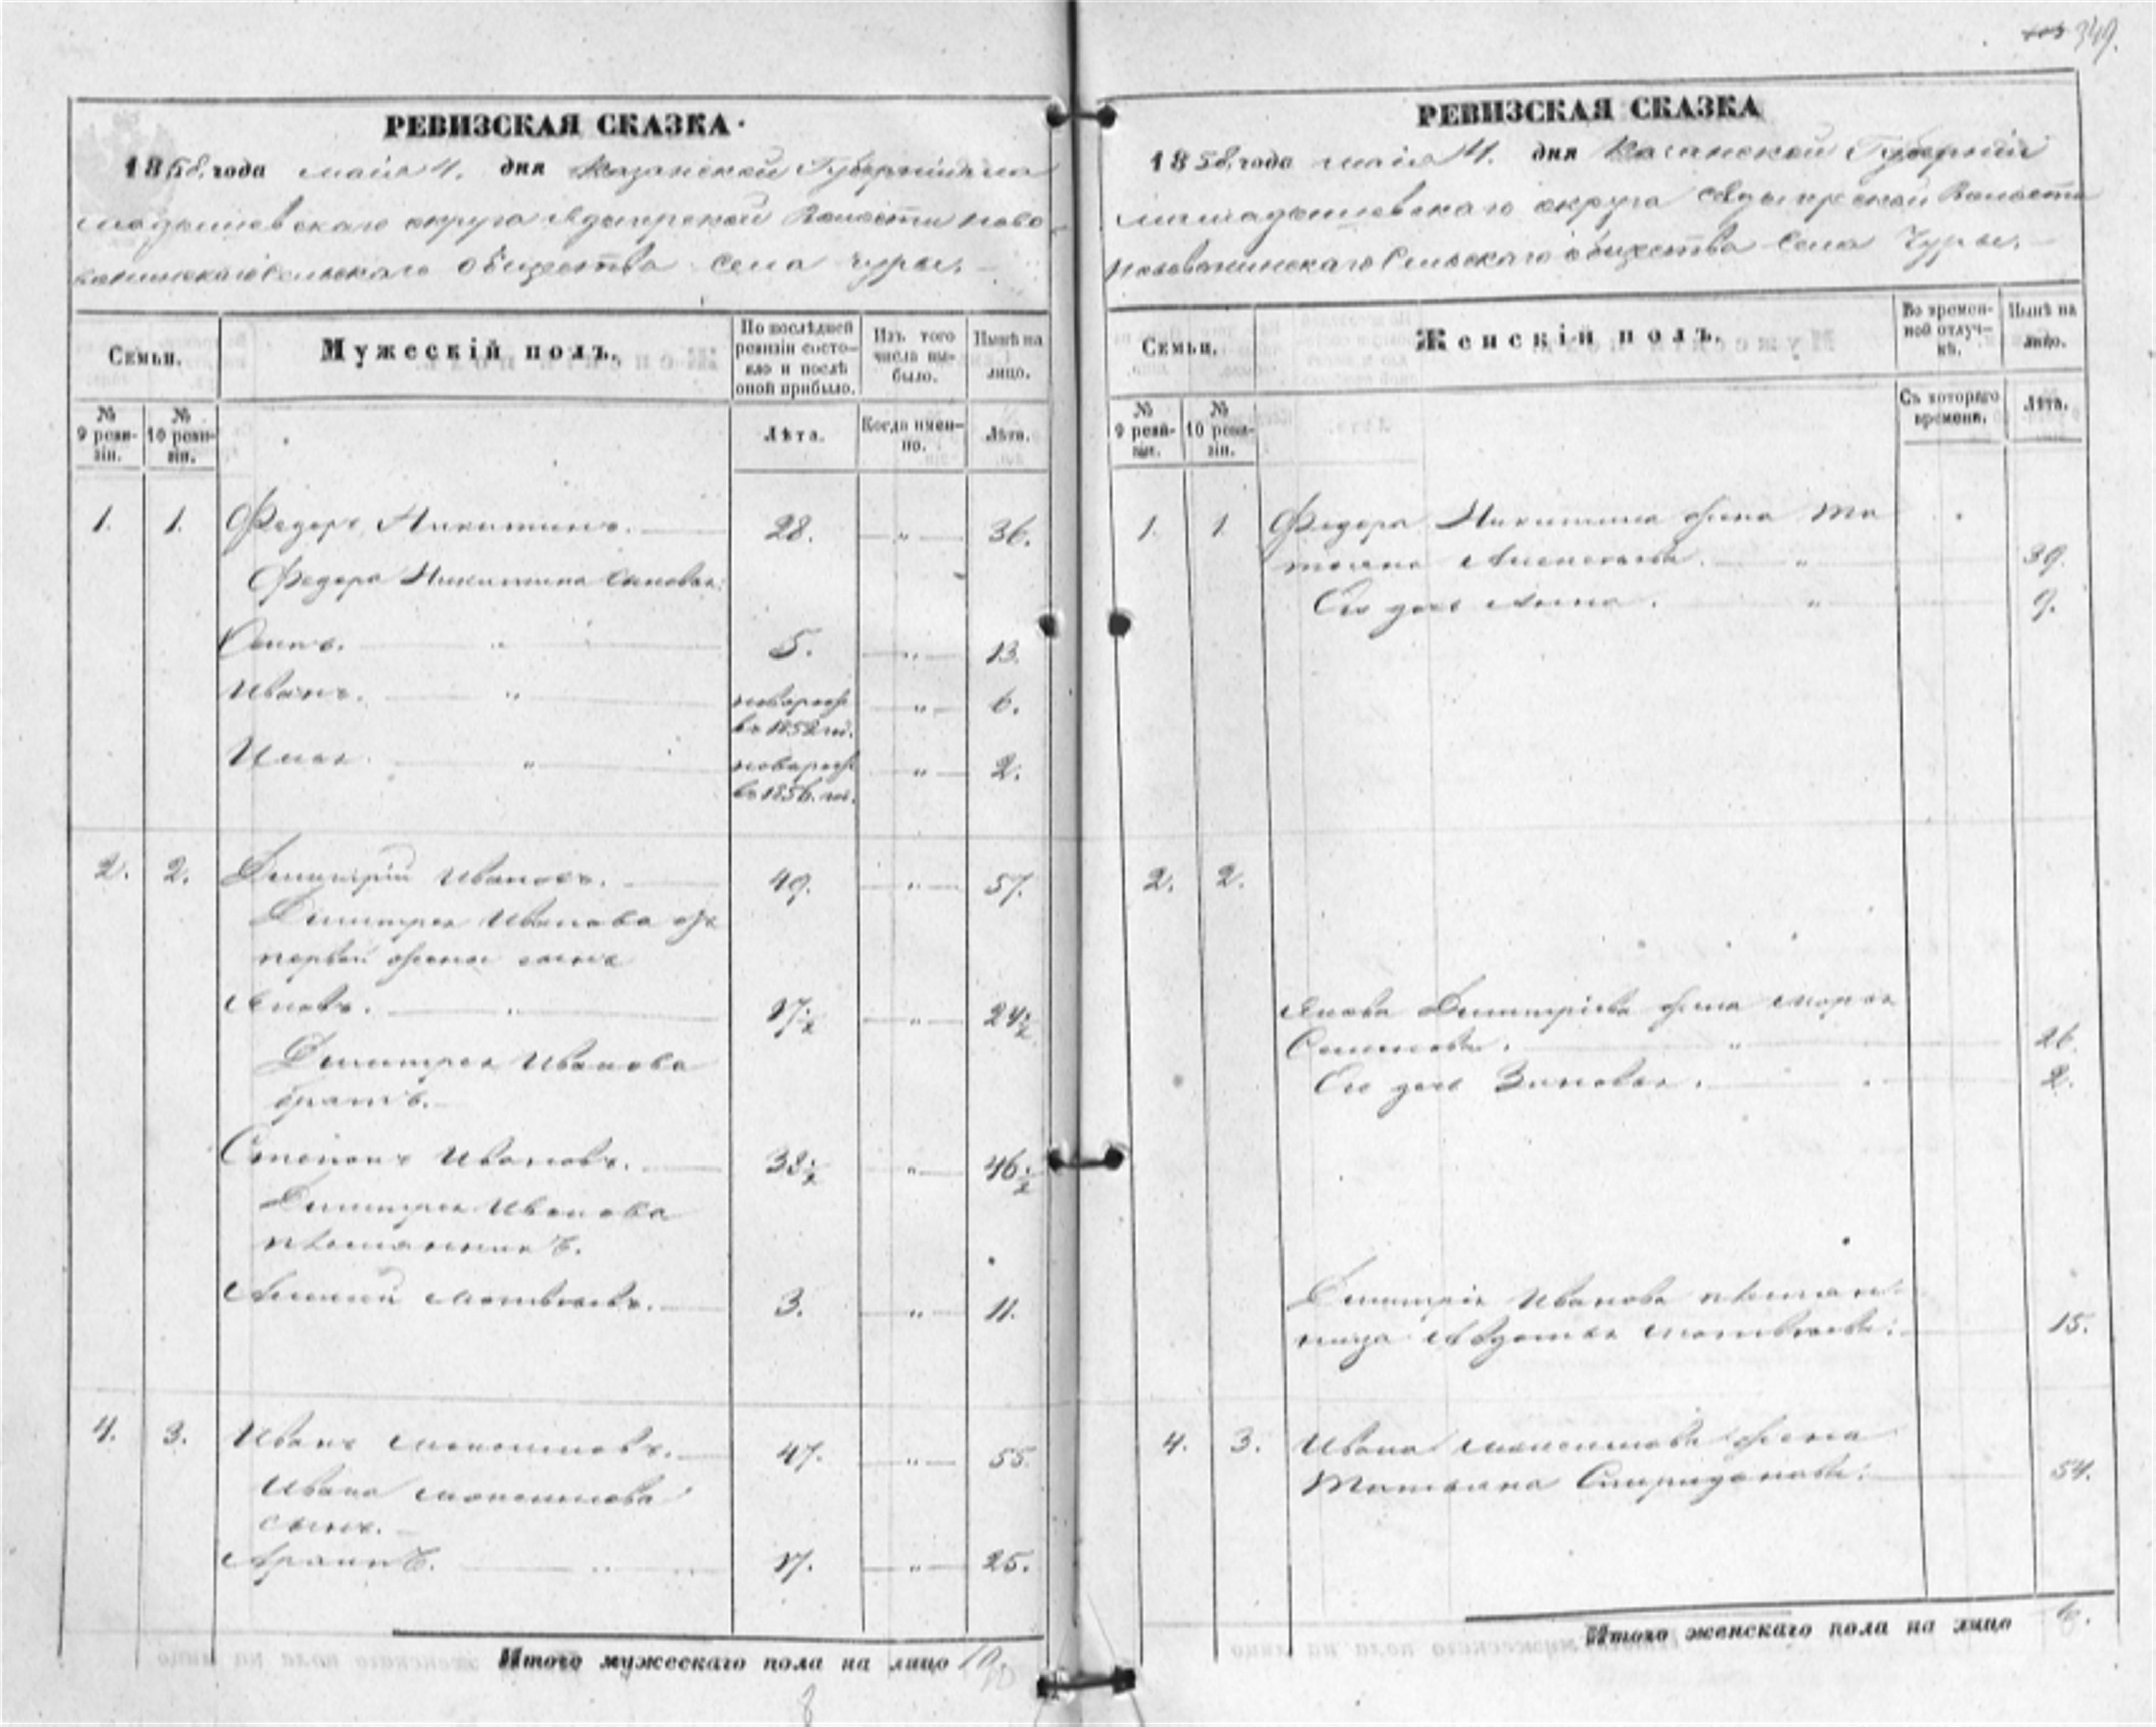 349.
РЕВИЗСКАЯ СКАЗКА
1858 года маія 4. дня Казанской Губерніи ма
мадышевскаго округа Ядыгерской Волости ново
Сельскаго общества села Чуры.
Семьи.
Мужескій полъ.
По послѣдней ревизіи состояло и послѣ оной прибыло.
Изъ того числа выбыло.
Нынѣ на лицо.
№ 9 ревизіи.
№ 10 ревизіи.
Лѣта.
Когда именно.
Лѣта.
1. 1. Федоръ Никитинъ. 28. " 36.
Федора Никитина сыновья:
Осипъ. " 5. " 13.
Иванъ. " новорож " 6.
въ 1852 го.
Илья. " новорож " 2.
въ 1856. го.
2. 2. Димитрій Ивановъ. 49. " 57.
Димитрея Иванова отъ
первой жены сынъ
Яковъ. " 17½ " 24½
Димитрея Иванова
братъ.
Степанъ Ивановъ. 38½ " 46½
Димитрея Иванова
племянникъ.
Алексей Матвѣевъ. 3. " 11.
4. 3. Иванъ Максимовъ. 47. " 55.
Ивана Максимова
сынъ.
Архипъ. 17. " 25.
Итого мужескаго пола на лицо 10.
8
РЕВИЗСКАЯ СКАЗКА
1858. года маія 4. дня Казанской Губерніи
мамадышевскаго округа Ядыгерской Волости
Сельскаго общества Села Чуры.
Семьи.
Женскій полъ.
Во временной отлучкѣ.
Нынѣ на лицо.
№ 9 ревизіи.
№ 10 ревизіи.
Съ котораго времени.
Лѣта.
1. 1. Федора Никитина жена Та
тьяна Алексеева. " 39.
Его дочь Анна. " 9.
2. 2.
Якова Димитріева жена Марья
Семенова. " 26.
Его дочь Зиновья. 2.
Димитрія Иванова племян
ница Авдотья Матвѣева: 15.
4. 3. Ивана Максимова жена
Татьяна Спиридонова: 54.
Итого женскаго пола на лицо 6.